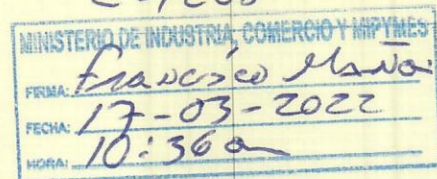 MINISTERIO DE INDUSTRIA, COMERCIO Y MIPYMES
FIRMA: Francisco
FECHA: 17-03-2022
HORA: 10:36 a